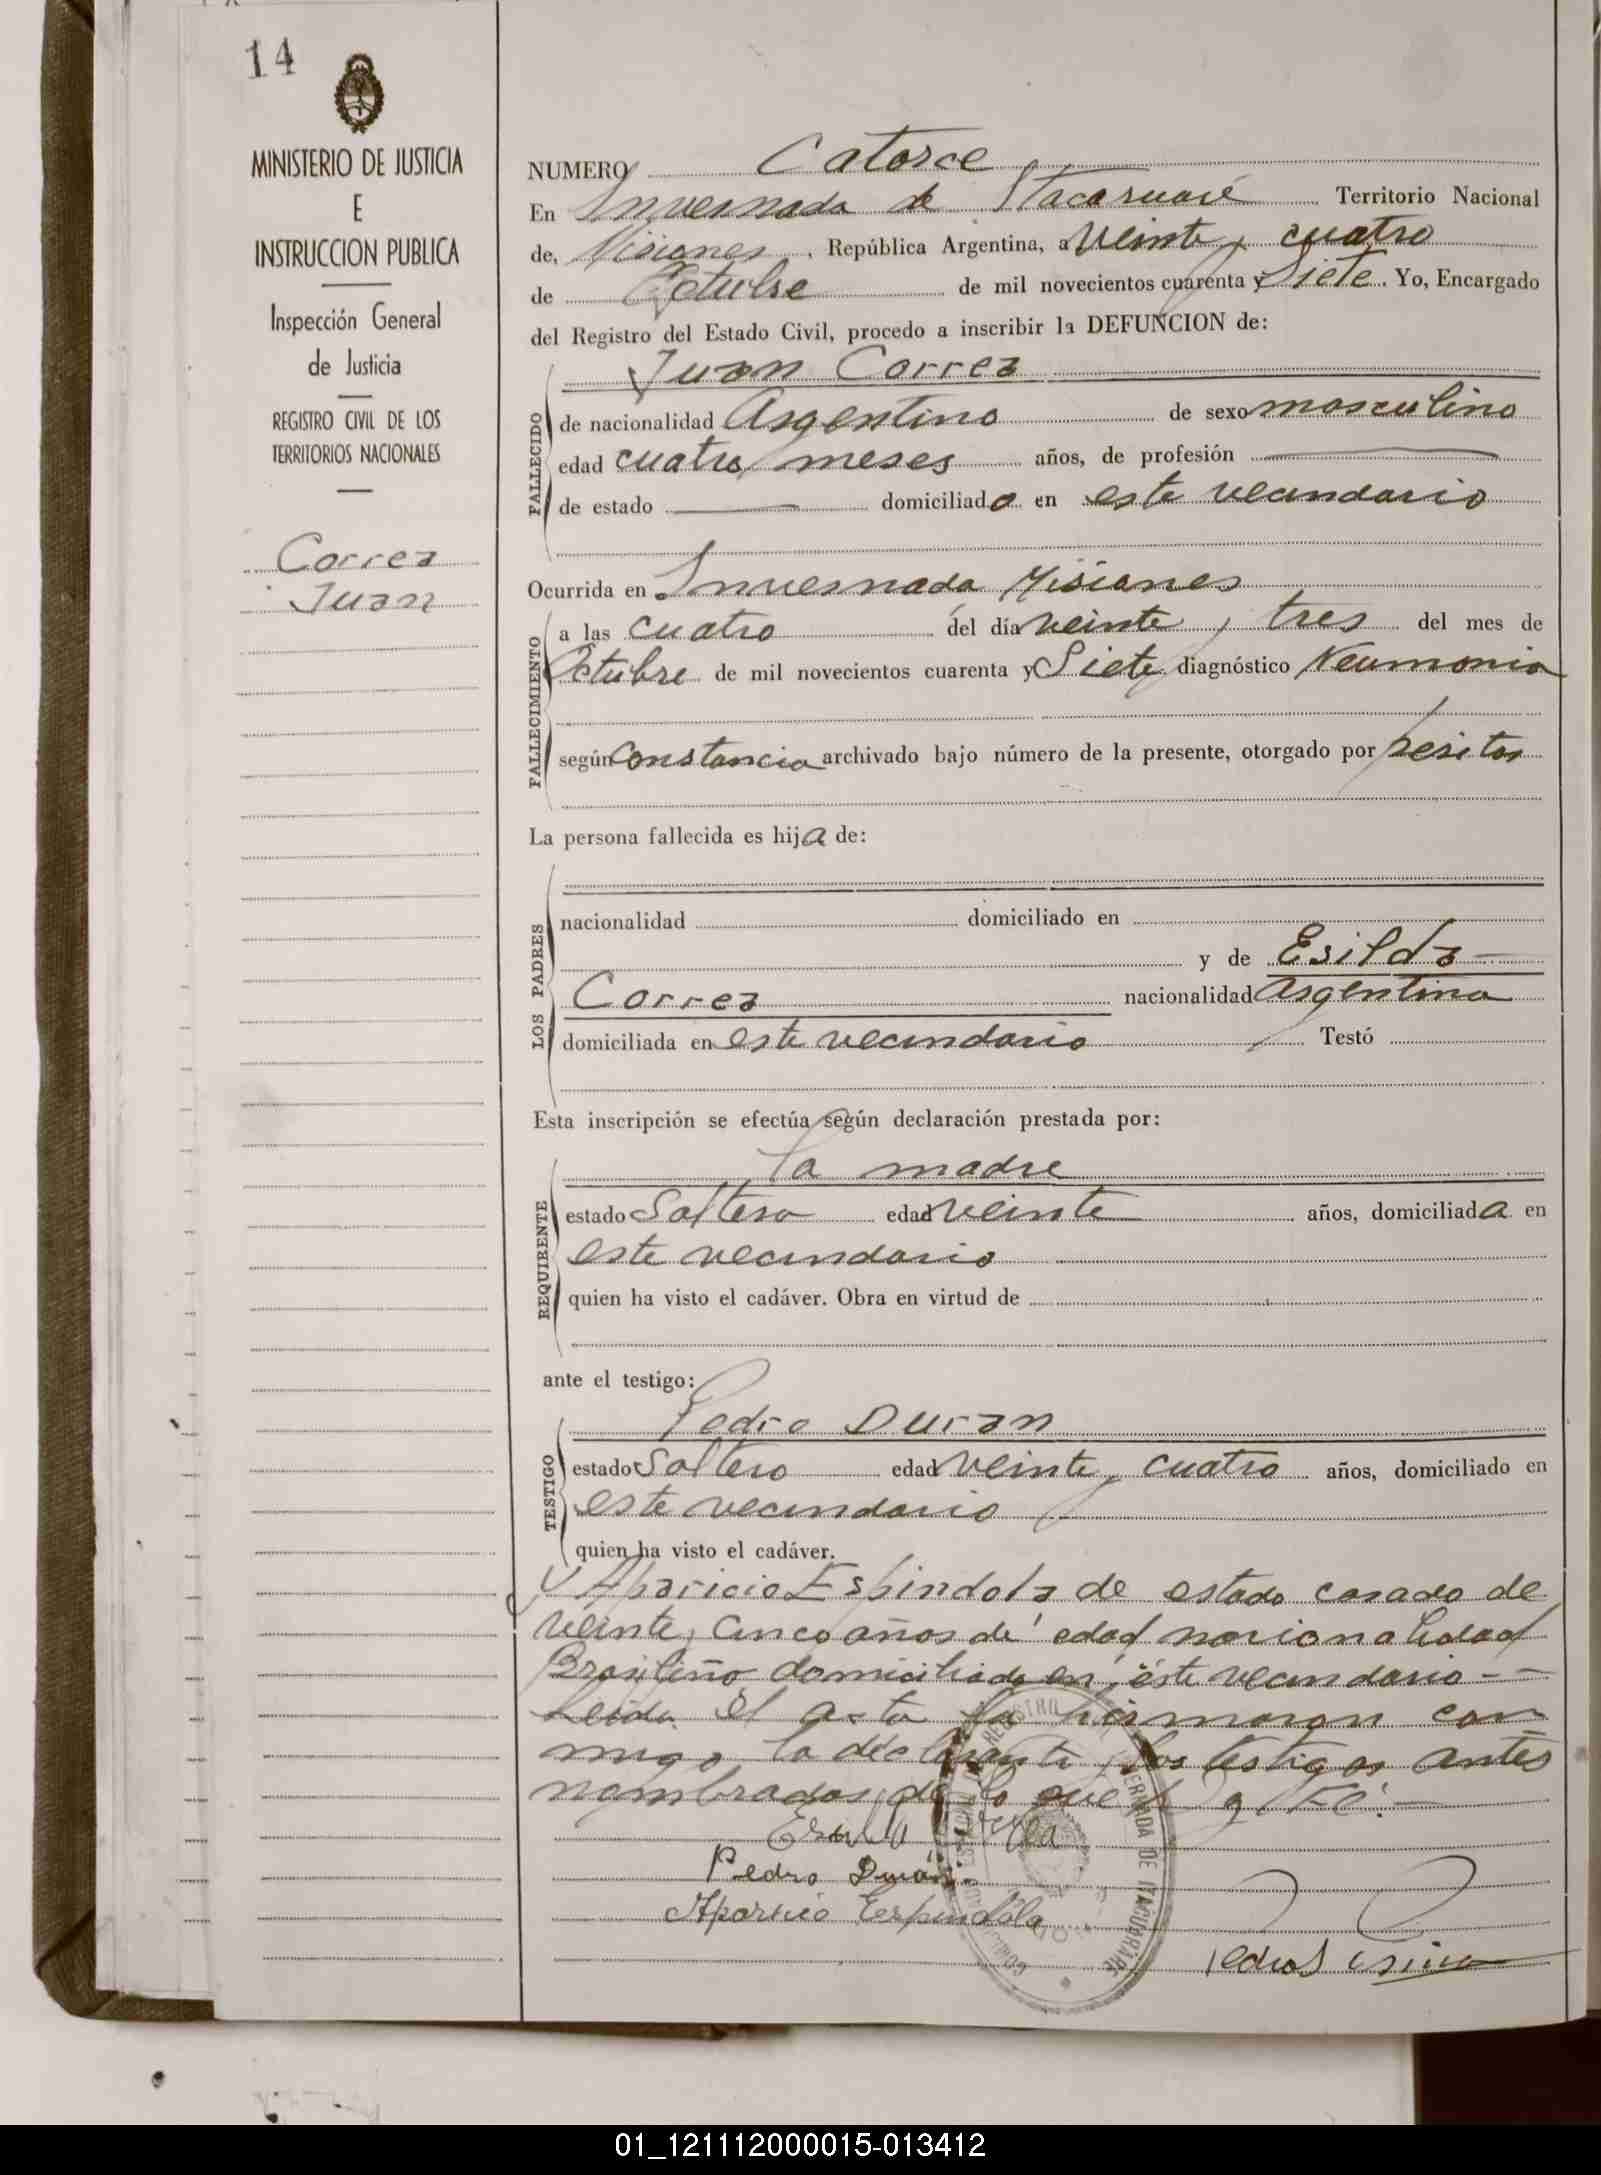 14
MINISTERIO DE JUSTICIA
E
INSTRUCCION PUBLICA
Inspección General
de Justicia
REGISTRO CIVIL DE LOS
TERRITORIOS NACIONALES
Correa
Juan
NUMERO Catorce
En Invernada de Itacaruaré Territorio Nacional
de, Misiones, República Argentina, a veinte y cuatro
de Octubre de mil novecientos cuarenta y Siete. Yo, Encargado
del Registro del Estado Civil, procedo a inscribir la DEFUNCION de:
Juan Correa
FALLECIDO
de nacionalidad Argentino de sexo masculino
edad cuatro meses años, de profesión
de estado domiciliado en este vecindario
Ocurrida en Invernada Misiones
FALLECIMIENTO
a las cuatro del día veinte y tres del mes de
Octubre de mil novecientos cuarenta y Siete, diagnóstico Neumonia
según Constancia archivado bajo número de la presente, otorgado por peritos
La persona fallecida es hija de:
LOS PADRES
nacionalidad domiciliado en
y de Esilda
Correa nacionalidad Argentina
domiciliada en este vecindario Testó
Esta inscripción se efectúa según declaración prestada por:
la madre
REQUIRENTE
estado Soltera edad veinte años, domiciliada en
este vecindario
quien ha visto el cadáver. Obra en virtud de
ante el testigo:
Pedro Duran
TESTIGO
estado Soltero edad veinte y cuatro años, domiciliado en
este vecindario
quien ha visto el cadáver.
y Aparicio Espindola de estado casado de
veinte y cinco años de edad nacionalidad
Brasileño domiciliado en este vecindario - -
Leida el acta la firmaron con
migo la declarante y los testigos antes
nombrados de lo que Doy Fé. -
Pedro Durán.
Aparicio Espindola
01_121112000015-013412